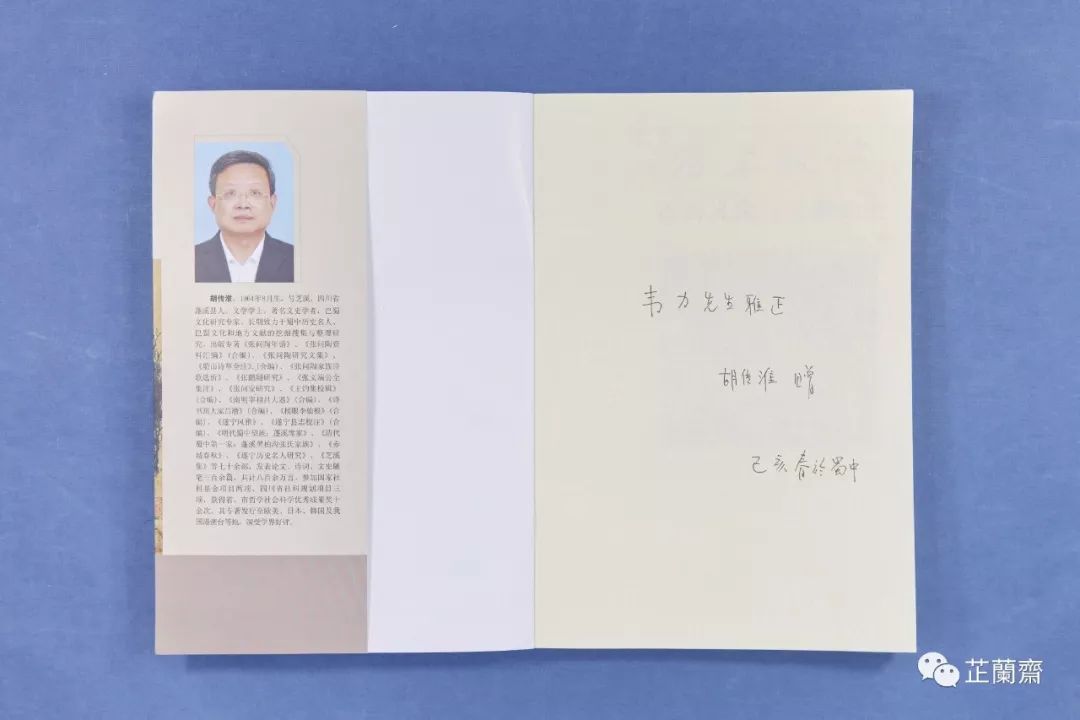 胡传淮，1964年8月生，号芝溪，四川省
蓬溪县人。文学学士，著名文史学者，巴蜀
文化研究专家。长期致力于蜀中历史名人、
巴蜀文化和地方文献的挖掘搜集与整理研
究。出版专著《张问陶年谱》、《张问陶资
料汇编》(合编)、《张问陶研究文集》、
(合编)、《张问陶家族诗
歌选析》、《张鹏翮研究》、《张文端公全
集注》、《张问安研究》、《王灼集校辑》
(合编)、《南明宰相吕大器》(合编)、《诗
书画大家吕潜》(合编)、《榜眼李仙根》(合
编)、《遂宁风雅》、《遂宁县志校注》(合
编)、《明代蜀中望族：蓬溪席家》、《清代
蜀中第一家：蓬溪黑柏沟张氏家族》、《赤
城春秋》、《遂宁历史名人研究》、《芝溪
集》等七十余部。发表论文、诗词、文史随
笔三百余篇，共计八百余万言。参加国家社
科基金项目两项、四川省社科规划项目三
项，获得省、市哲学社会科学优秀成果奖十
余次。其专著发行至欧美、日本、韩国及我
国港澳台等地，深受学界好评。
韦力先生雅正
胡传淮 赠
己亥春於蜀中
芷蘭齋